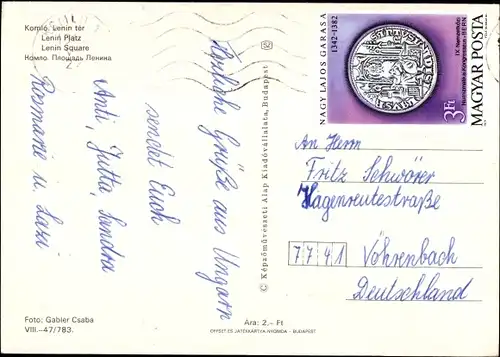 Komló. Lenin tér
Lenin Platz
Lenin Square
Комло. Площадь Ленина
Herzliche Grüße aus Ungarn
sendet Euch
Anti, Jutta, Sandra
Rosmarie u. Lazi
Foto: Gabler Csaba
VIII.—47/783.
Ára: 2,- Ft
OFFSET ÉS JÁTÉKKÁRTYA NYOMDA - BUDAPEST
© Képzőművészeti Alap Kiadóvállalata, Budapest
NAGY LAJOS GARASA
1342-1382
3Ft
MAGYAR POSTA
An Herrn
Fritz Schwörer
Hagenreutestraße
7741 Vöhrenbach
Deutschland